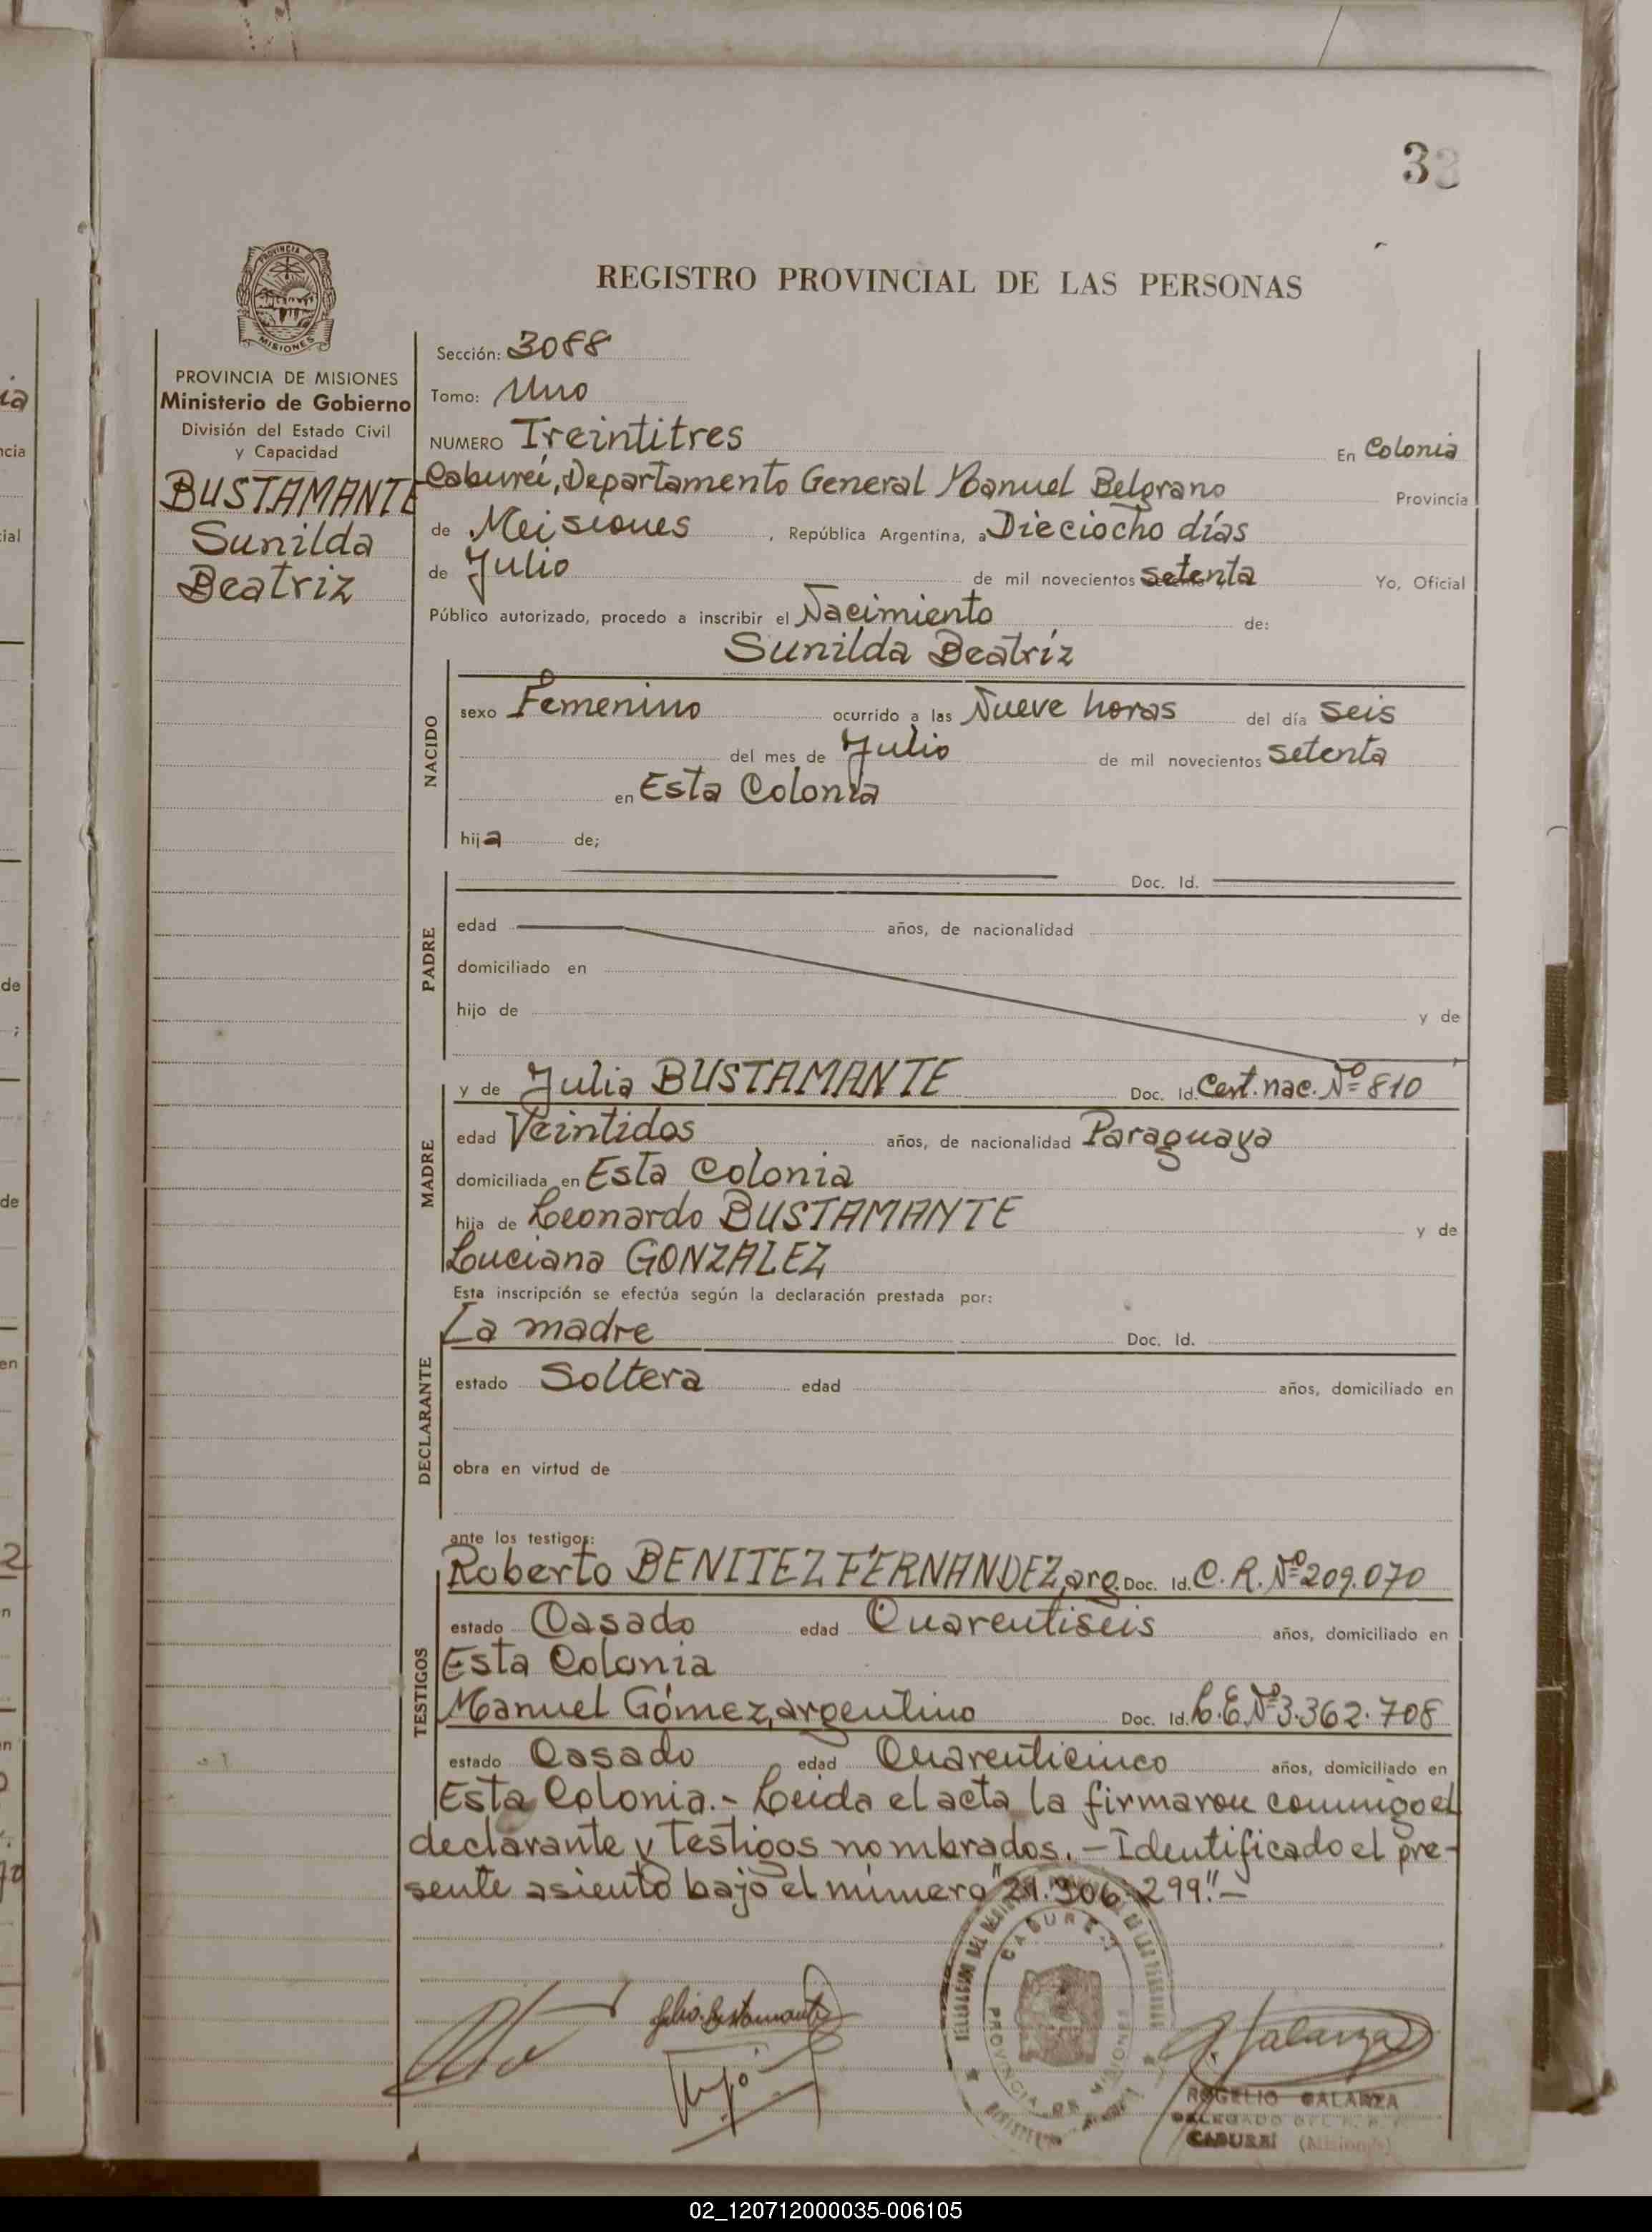 33
REGISTRO PROVINCIAL DE LAS PERSONAS
PROVINCIA DE MISIONES
PROVINCIA DE MISIONES
Ministerio de Gobierno
División del Estado Civil
y Capacidad
BUSTAMANTE
Sunilda
Beatriz
Sección: 3088
Tomo: Uno
NUMERO Treintitres En Colonia
Caburei, Departamento General Manuel Belgrano Provincia
de Meisiones, República Argentina, a Dieciocho días
de Julio de mil novecientos setenta Yo, Oficial
Público autorizado, procedo a inscribir el Nacimiento de:
Sunilda Beatriz
NACIDO
sexo Femenino ocurrido a las Nueve horas del día seis
del mes de Julio de mil novecientos setenta
en Esta Colonia
hija de;
PADRE
Doc. Id.
edad años, de nacionalidad
domiciliado en
hijo de y de
MADRE
y de Julia BUSTAMANTE Doc. Id. Cert. nac. Nº 810
edad Veintidos años, de nacionalidad Paraguaya
domiciliada en Esta Colonia
hija de Leonardo BUSTAMANTE y de
Luciana GONZALEZ
Esta inscripción se efectúa según la declaración prestada por:
DECLARANTE
La madre Doc. Id.
estado Soltera edad años, domiciliado en
obra en virtud de
ante los testigos:
TESTIGOS
Roberto BENITEZ FERNANDEZ, arg. Doc. Id. C. R. Nº 209.070
estado Casado edad Cuarentiseis años, domiciliado en
Esta Colonia
Manuel Gómez, argentino Doc. Id. L.E. Nº 3.362.708
estado Casado edad Cuarenticinco años, domiciliado en
Esta Colonia.- Leida el acta la firmaron conmigo el
declarante y testigos nombrados.- Identificado el pre-
sente asiento bajo el número "21.306.299".-
Julia Bustamante
CABUREI
PROVINCIA DE MISIONES
R. Galarza
ROGELIO GALARZA
DELEGADO DEL R. P.
CABUREI (Misiones)
02_120712000035-006105